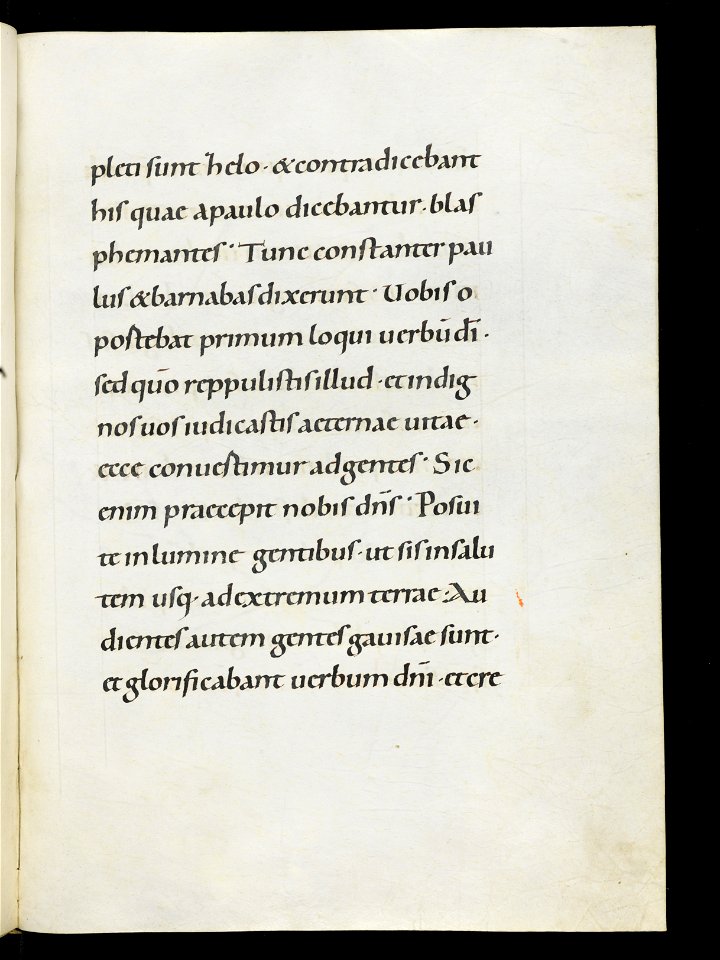 pleti sunt helo · &contradicebant
his quae apaulo dicebantur · blas
phemantes · Tunc constanter pau
lus &barnabas dixerunt · Uobis o
postebat primum loqui uerbū dī ·
sed quō reppulistis illud · et indig
nos uos iudicastis aeternae uitae ·
ecce conuestimur adgentes · Sic
enim praecepit nobis dn̄s · Posui
te in lumine gentibus · ut sis insalu
tem usq· ad extremum terrae · Au
dientes autem gentes gauisae sunt ·
et glorificabant uerbum dn̄i · et cre